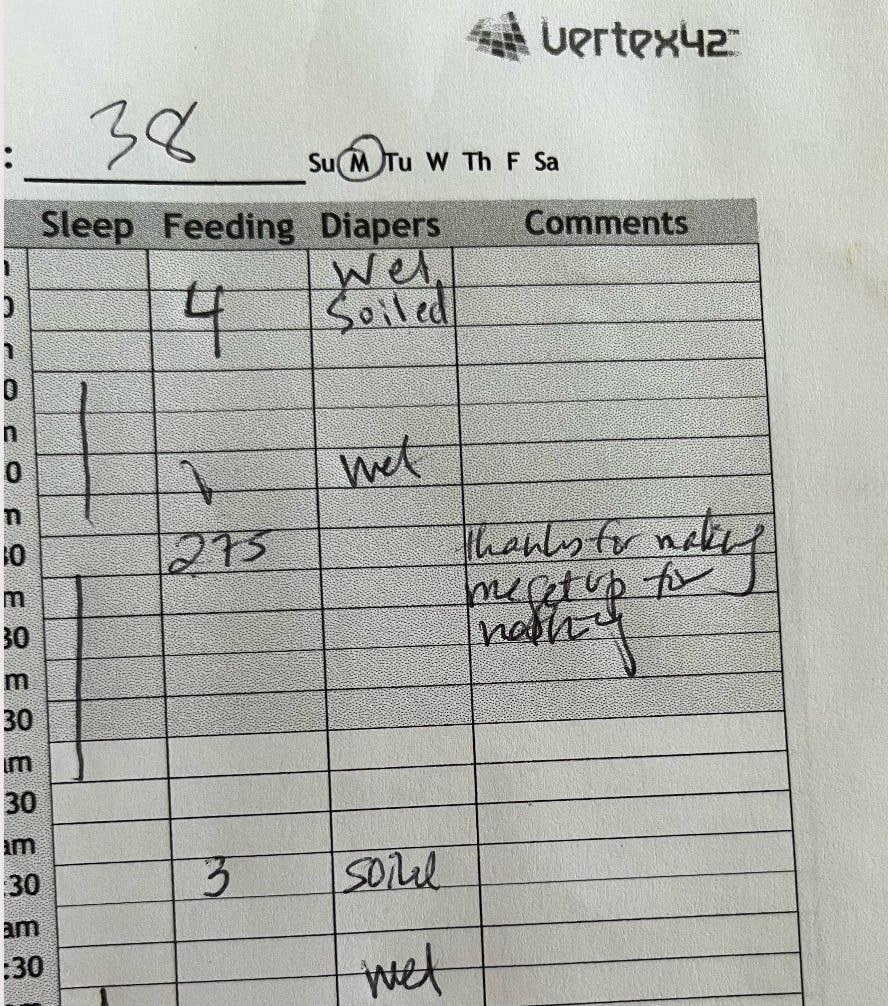 vertex42™
: 38 Su M Tu W Th F Sa
Sleep Feeding Diapers Comments
Wet
4 Soiled
0
wet
0
m
30 275 thanks for making
m me get up for
30 nothing
m
30
am
30
am
:30 3 soiled
am
:30 wet